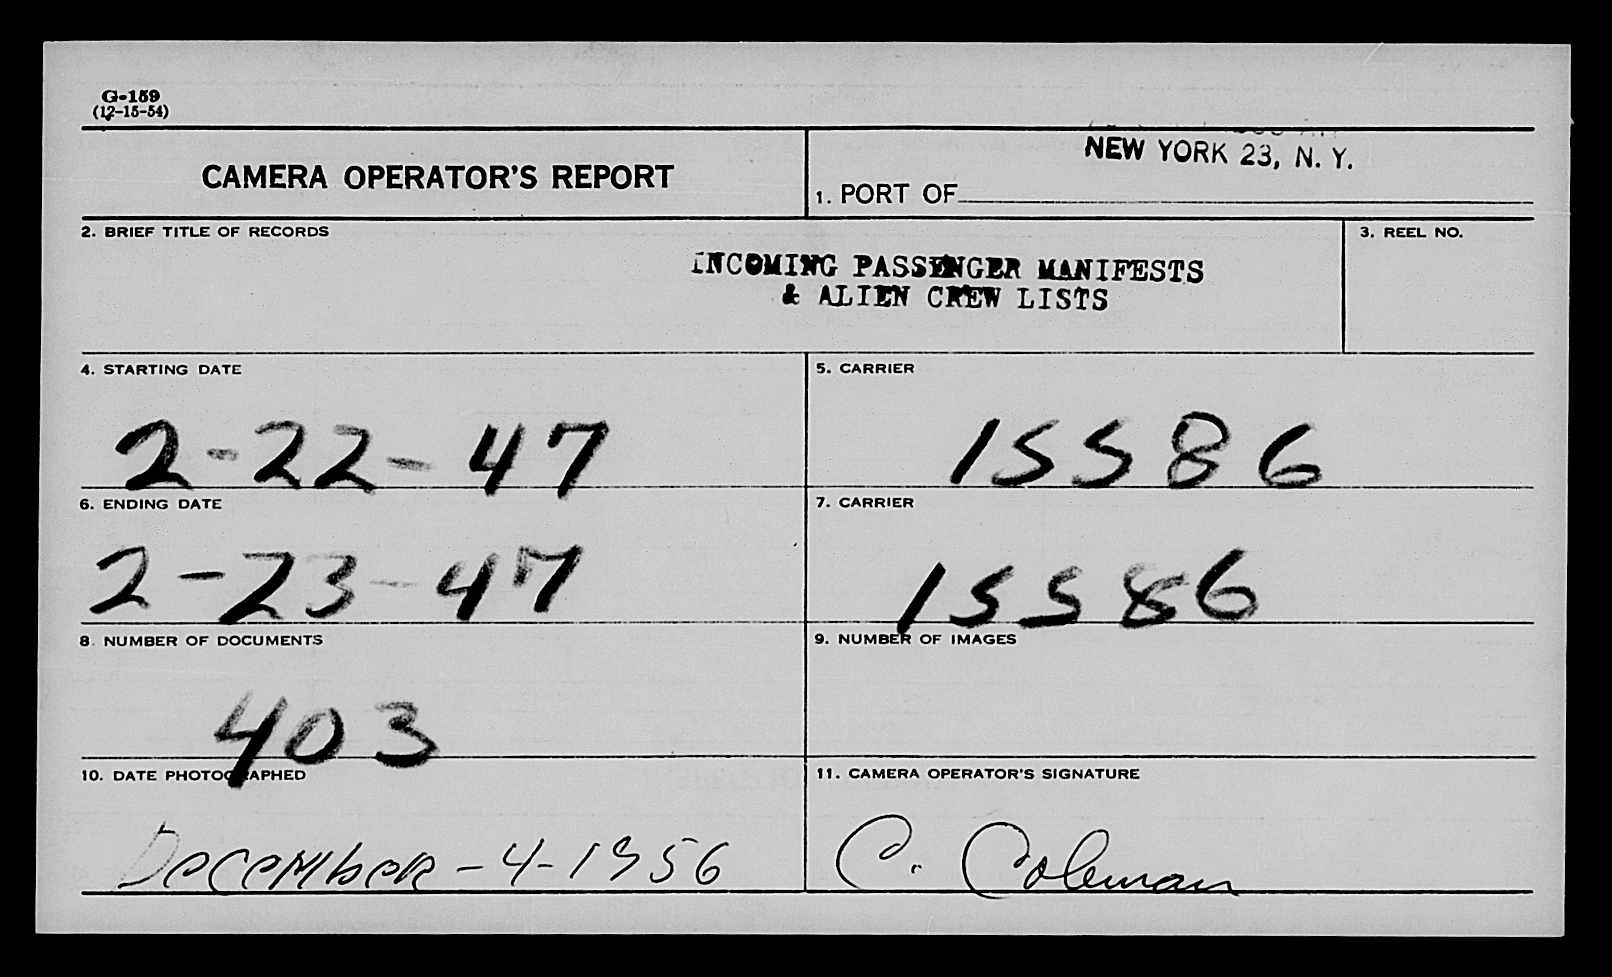 G-159
(12-15-54)
CAMERA OPERATOR'S REPORT
NEW YORK 23, N. Y.
1. PORT OF
2. BRIEF TITLE OF RECORDS
3. REEL NO.
INCOMING PASSENGER MANIFESTS
& ALIEN CREW LISTS
4. STARTING DATE
5. CARRIER
2-22-47
15586
6. ENDING DATE
7. CARRIER
2-23-47
15586
8. NUMBER OF DOCUMENTS
9. NUMBER OF IMAGES
403
10. DATE PHOTOGRAPHED
11. CAMERA OPERATOR'S SIGNATURE
December-4-1956
C. Coleman